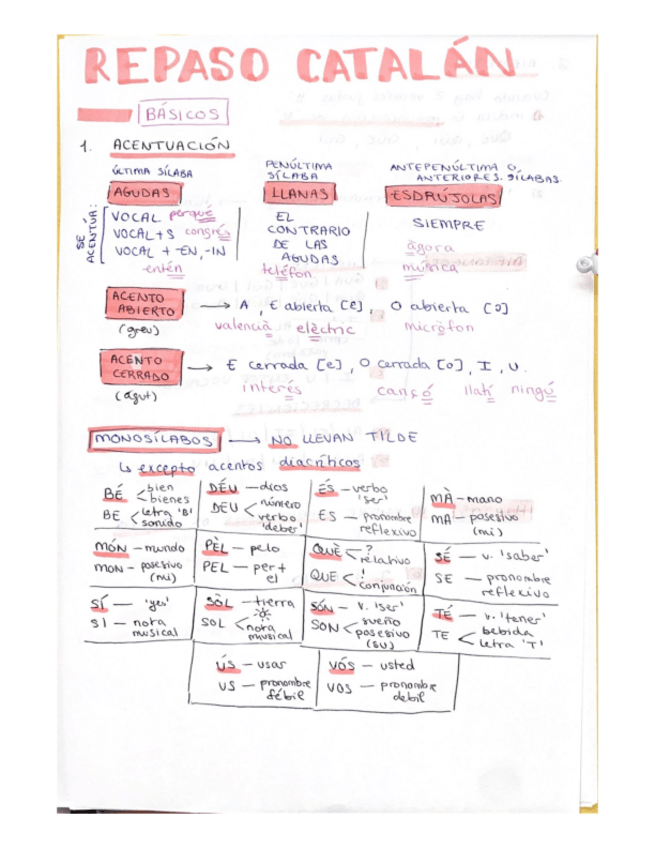 REPASO CATALÁN
BÁSICOS
1. ACENTUACIÓN
ÚLTIMA SÍLABA
AGUDAS
SE ACENTÚA:
VOCAL perquè
VOCAL+S congrés
VOCAL + -EN, -IN
entén
PENÚLTIMA
SÍLABA
LLANAS
EL
CONTRARIO
DE LAS
AGUDAS
telèfon
ANTEPENÚLTIMA O
ANTERIORES SÍLABAS.
ESDRÚJOLAS
SIEMPRE
àgora
música
ACENTO
ABIERTO
(greu)
→ A, E abierta [e], O abierta [o]
valencià elèctric micròfon
ACENTO
CERRADO
(agut)
→ E cerrada [e], O cerrada [o], I, U.
interés cançó llatí ningú
MONOSÍLABOS → NO LLEVAN TILDE
↳ excepto acentos diacríticos
BÉ < bien
bienes
BE < letra 'B'
sonido
DÉU — dios
DEU < número
verbo
'deber'
ÉS — verbo
'ser'
ES — pronombre
reflexivo
MÀ — mano
MA — posesivo
(mi)
MÓN — mundo
MON — posesivo
(mi)
PÈL — pelo
PEL — per+
el
QUÈ < ?
relativo
QUE < !
conjunción
SÉ — v. 'saber'
SE — pronombre
reflexivo
SÍ — 'yes'
SI — nota
musical
SÒL — tierra
SOL <
nota
musical
SÓN — v. 'ser'
SON < sueño
posesivo
(su)
TÉ — v. 'tener'
TE < bebida
letra 'T'
ÚS — usar
US — pronombre
débil
VÓS — usted
VOS — pronombre
debil